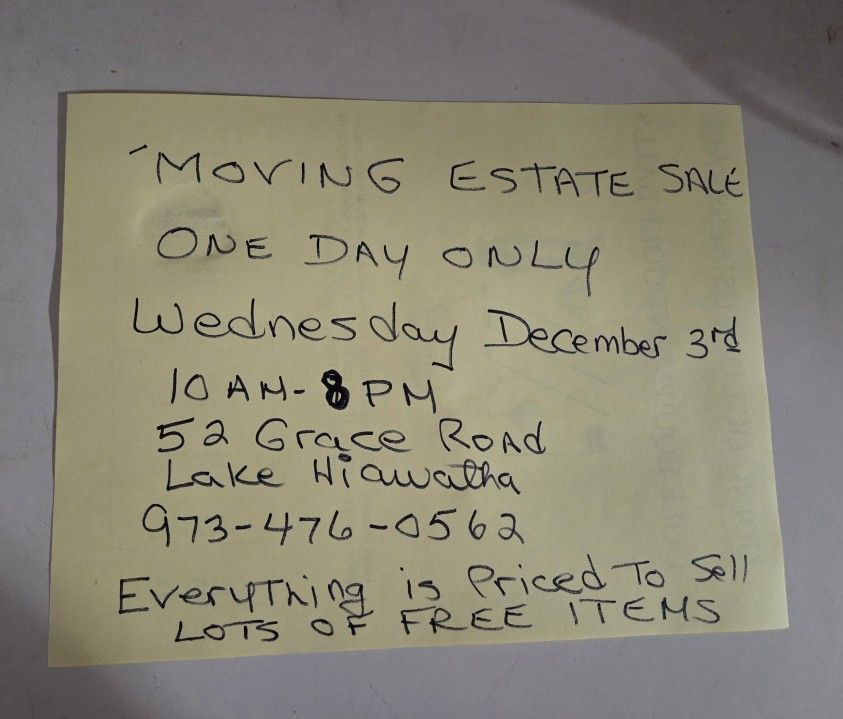 MOVING ESTATE SALE
ONE DAY ONLY
Wednesday December 3rd
10 AM - 8 PM
52 Grace Road
Lake Hiawatha
973-476-0562
Everything is Priced To Sell
LOTS OF FREE ITEMS